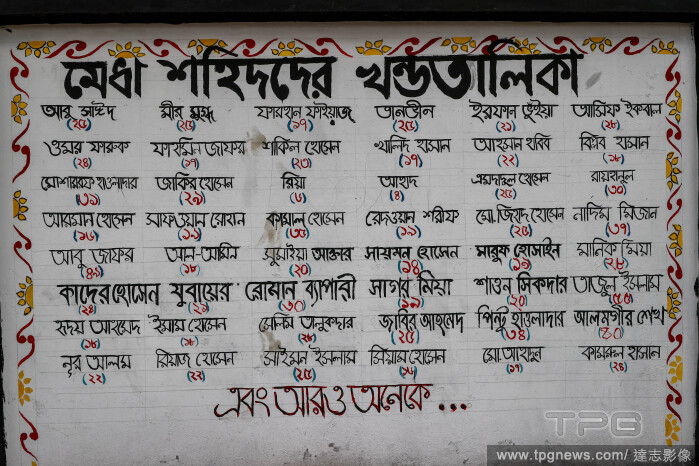 মেধা শহিদদের খন্ডতালিকা
আবু সাঈদ মীর মুগ্ধ ফারহান ফাইয়াজ তানভীন ইরফান ভূঁইয়া আসিফ ইকবাল
(২৫) (২৫) (১৭) (২৫) (২১) (২৮)
ওমর ফারুক ফাহমিন জাফর শাকিল হোসেন খালিদ হাসান আহসান হাবিব বিপ্লব হাসান
(২৪) (১৭) (২৩) (১৭) (২২) (১৮)
মোশাররফ হাওলাদার জাকির হোসেন রিয়া আহাদ এমদাদুল হোসেন
(২৯) (৬) (৪) (৩০)
আরমান হোসেন সাফওয়ান কামাল হোসেন রেদওয়ান শরীফ মো. জিহাদ হোসেন নাদিম মিজান
(১৬) (১৯) (৩৫) (১৯) (২৫) (৩৭)
আবু জাফর আল-আমিন সুমাইয়া আক্তার সায়মন হোসেন মারুফ হোসাইন মানিক মিয়া
(১৮) (২০) (১৪) (১৯) (২৮)
কাদের হোসেন যুবায়ের রোমান ব্যাপারী সাগর মিয়া শাওন সিকদার তাজুল ইসলাম
(২৪) (২১) (৩০) (১৯) (২০) (৫৫)
হৃদয় আহমেদ ইমাম হোসেন সেলিম তালুকদার জাবির আহমেদ পিন্টু হাওলাদার আলমগীর শেখ
(১৮) (১৮) (২৮) (২৫) (৩৪) (৪০)
নূর আলম রিয়াজ হোসেন সাইমন ইসলাম সিয়াম হোসেন মো. আহাদুল কামরুল হাসান
(২২) (২২) (২৫) (১৮) (১৭) (২৪)
এবং আরও অনেকে...
TPG
www.tpgnews.com/ 達志影像